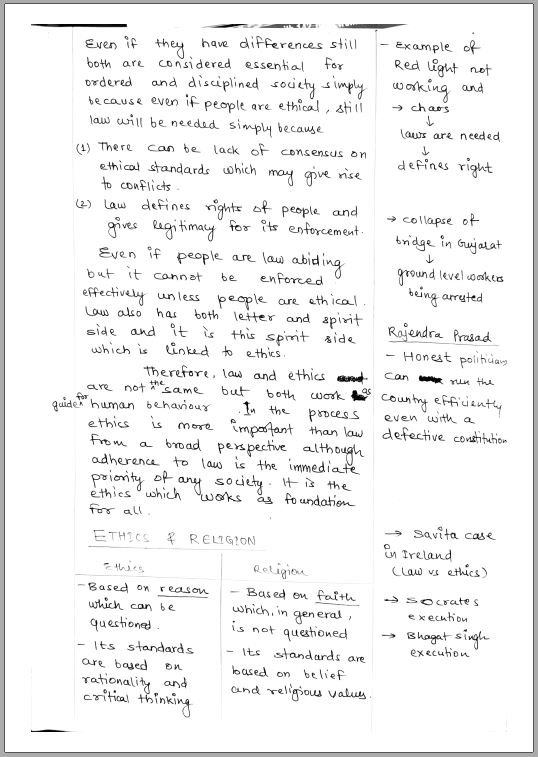 Even if they have differences still
both are considered essential for
ordered and disciplined society simply
because even if people are ethical, still
law will be needed simply because
(1) There can be lack of consensus on
ethical standards which may give rise
to conflicts.
(2) Law defines rights of people and
gives legitimacy for its enforcement.
Even if people are law abiding
but it cannot be enforced
effectively unless people are ethical.
Law also has both letter and spirit
side and it is this spirit side
which is linked to ethics.
Therefore, law and ethics
are not the same but both work as
guide for human behaviour. In the process
ethics is more important than law
from a broad perspective although
adherence to law is the immediate
priority of any society. It is the
ethics which works as foundation
for all.
ETHICS & RELIGION
Ethics
- Based on reason
which can be
questioned.
- Its standards
are based on
rationality and
critical thinking
Religion
- Based on faith
which, in general,
is not questioned
- Its standards are
based on belief
and religious values.
- Example of
Red light not
working and
→ chaos
↓
laws are needed
↓
defines right
→ collapse of
bridge in Gujarat
↓
ground level workers
being arrested
Rajendra Prasad
- Honest politicians
can run the
country efficiently
even with a
defective constitution
→ Savita case
in Ireland
(law vs ethics)
→ Socrates
execution
→ Bhagat singh
execution